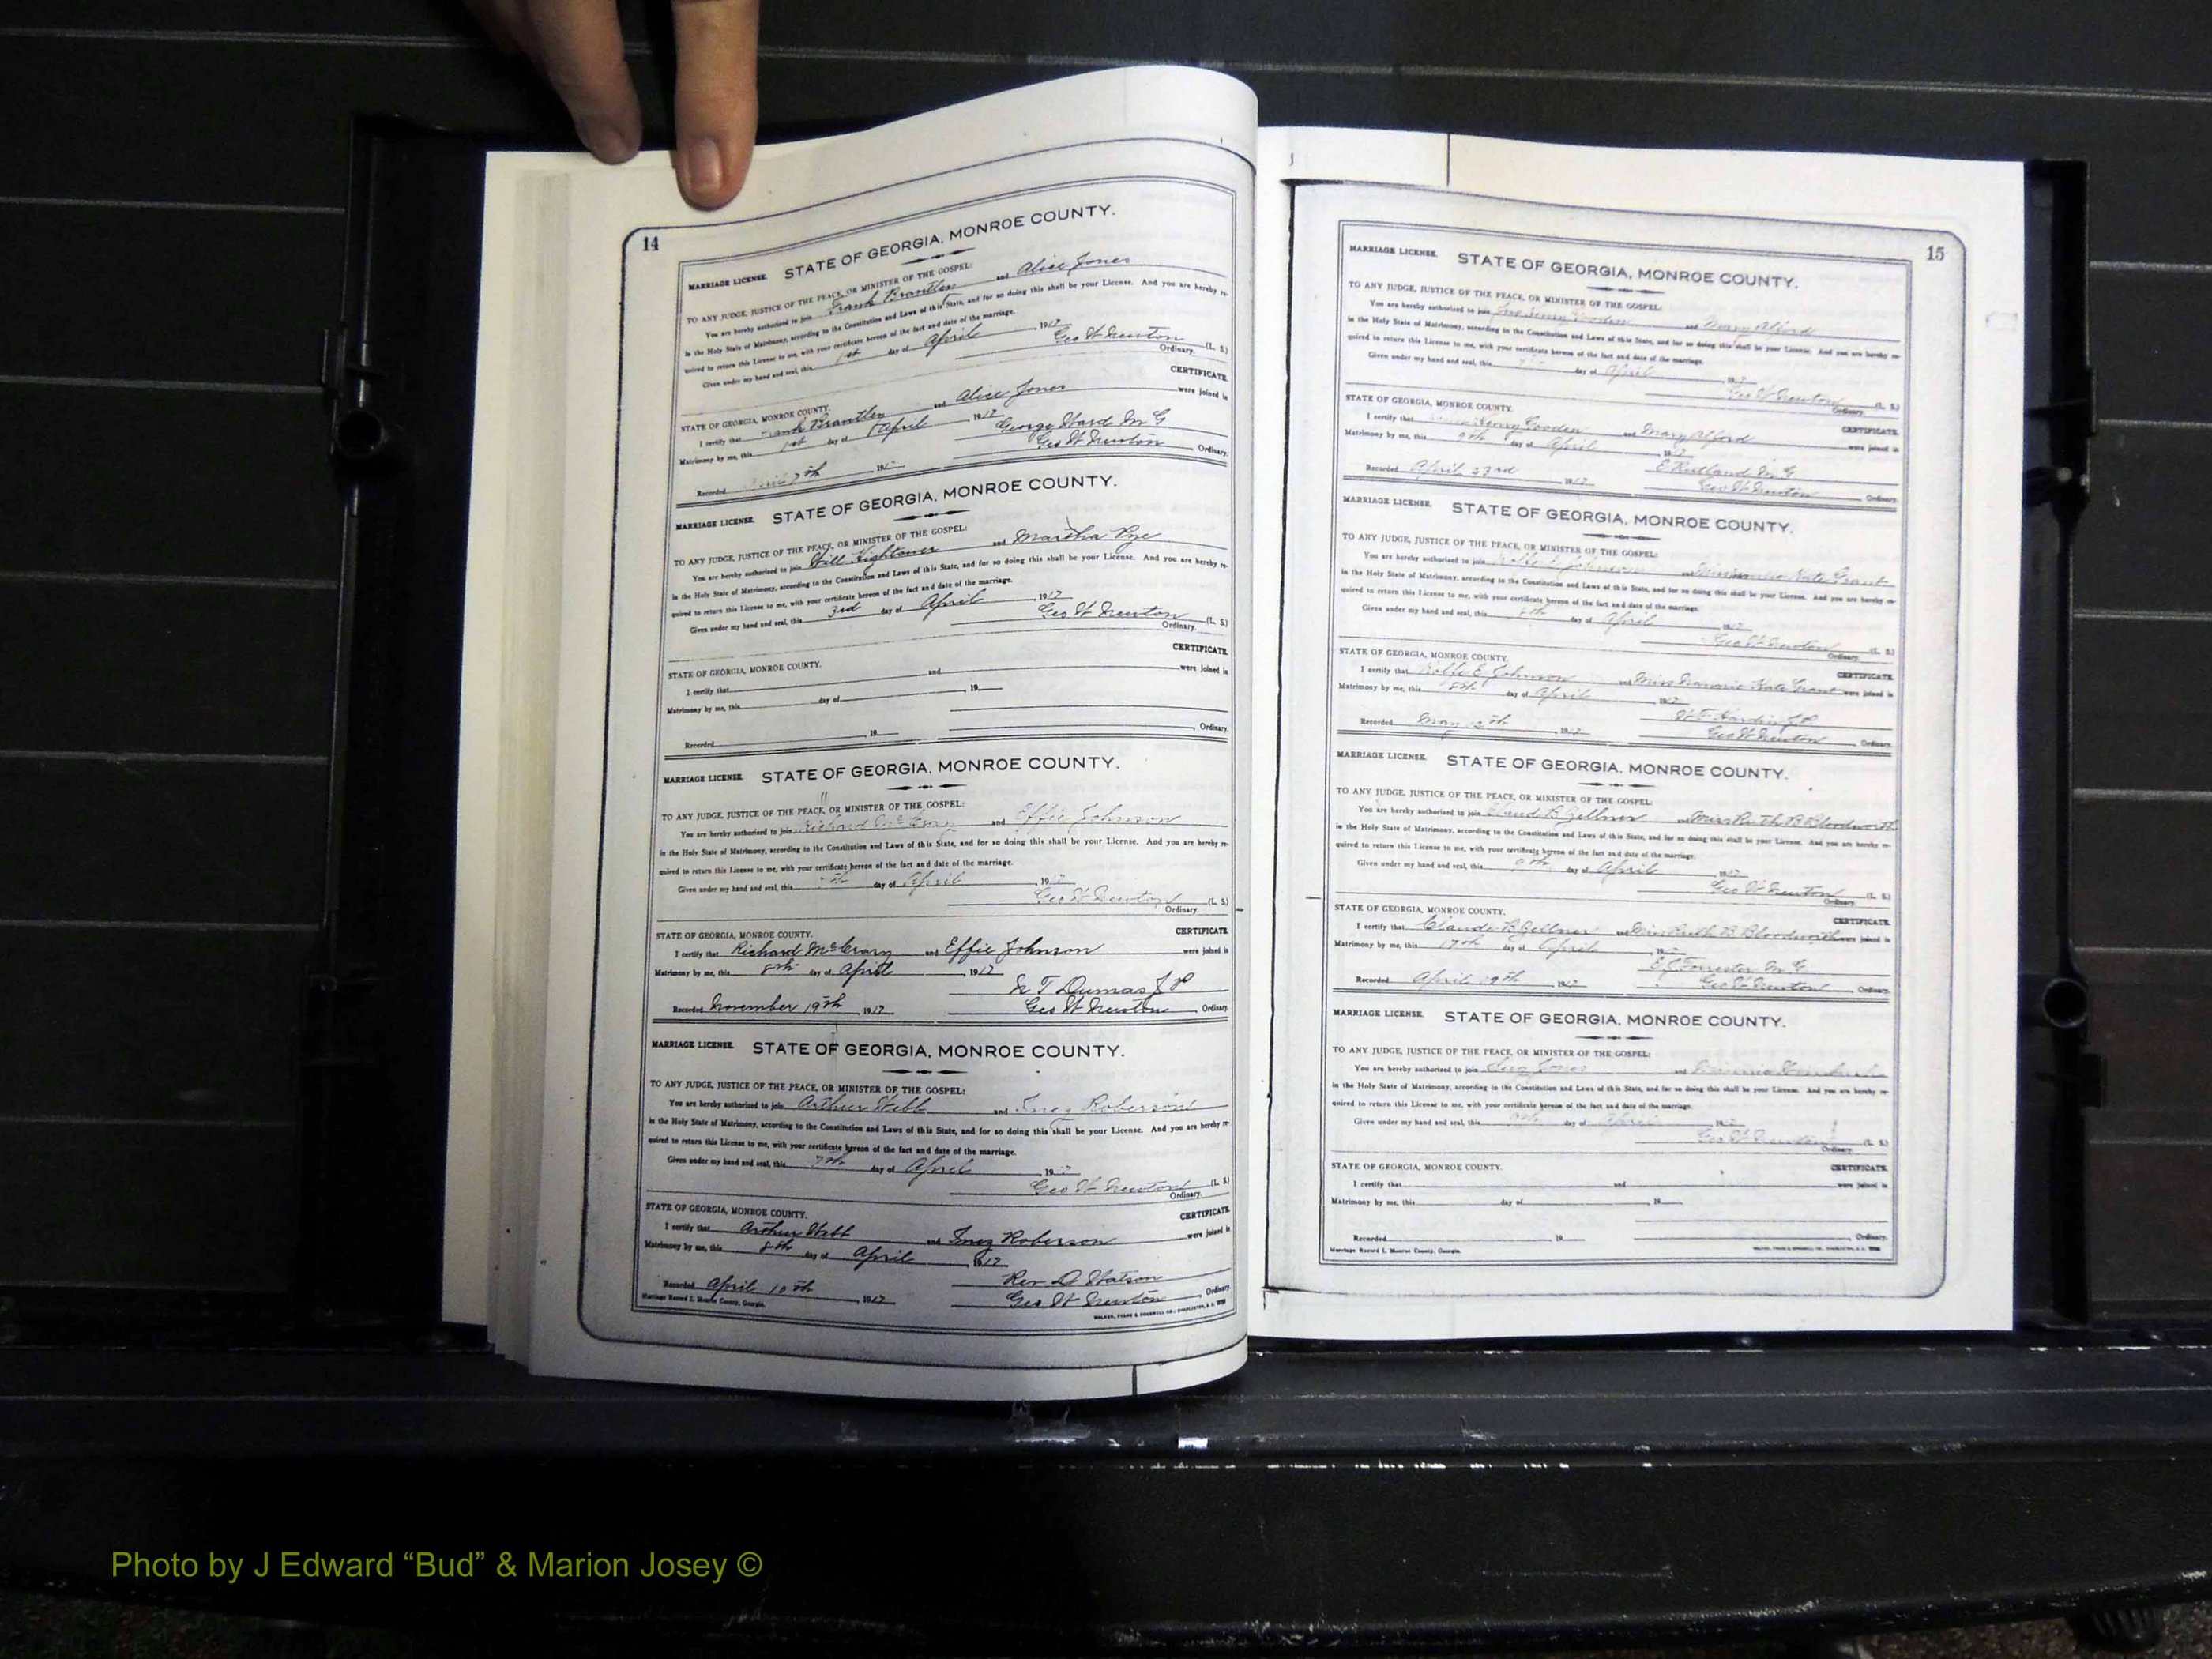 14
MARRIAGE LICENSE. STATE OF GEORGIA, MONROE COUNTY.
TO ANY JUDGE, JUSTICE OF THE PEACE, OR MINISTER OF THE GOSPEL:
You are hereby authorized to join Frank Brantley and Alice Jones
in the Holy State of Matrimony, according to the Constitution and Laws of this State, and for so doing this shall be your License. And you are hereby re-
quired to return this License to me, with your certificate hereon of the fact and date of the marriage.
Given under my hand and seal, this 1st day of April, 1917
Geo W Newton (L. S.)
Ordinary.
CERTIFICATE.
STATE OF GEORGIA, MONROE COUNTY.
I certify that Frank Brantley and Alice Jones were joined in
Matrimony by me, this 1st day of April, 1917
George Ward M G
Recorded April 7th 191 Geo W Newton Ordinary.
MARRIAGE LICENSE. STATE OF GEORGIA, MONROE COUNTY.
TO ANY JUDGE, JUSTICE OF THE PEACE, OR MINISTER OF THE GOSPEL:
You are hereby authorized to join Will Hightower and Martha Pye
in the Holy State of Matrimony, according to the Constitution and Laws of this State, and for so doing this shall be your License. And you are hereby re-
quired to return this License to me, with your certificate hereon of the fact and date of the marriage.
Given under my hand and seal, this 3rd day of April, 1917
Geo W Newton (L. S.)
Ordinary.
CERTIFICATE.
STATE OF GEORGIA, MONROE COUNTY.
I certify that and were joined in
Matrimony by me, this day of , 19
Recorded , 19 Ordinary.
MARRIAGE LICENSE. STATE OF GEORGIA, MONROE COUNTY.
TO ANY JUDGE, JUSTICE OF THE PEACE, OR MINISTER OF THE GOSPEL:
You are hereby authorized to join Richard McCrary and Effie Johnson
in the Holy State of Matrimony, according to the Constitution and Laws of this State, and for so doing this shall be your License. And you are hereby re-
quired to return this License to me, with your certificate hereon of the fact and date of the marriage.
Given under my hand and seal, this day of April, 1917
Geo W Newton (L. S.)
Ordinary.
STATE OF GEORGIA, MONROE COUNTY. CERTIFICATE.
I certify that Richard McCrary and Effie Johnson were joined in
Matrimony by me, this 8th day of April, 1917
T Dumas J P
Recorded November 19th, 1917 Geo W Newton, Ordinary.
MARRIAGE LICENSE. STATE OF GEORGIA, MONROE COUNTY.
TO ANY JUDGE, JUSTICE OF THE PEACE, OR MINISTER OF THE GOSPEL:
You are hereby authorized to join Arthur Webb and Inez Roberson
in the Holy State of Matrimony, according to the Constitution and Laws of this State, and for so doing this shall be your License. And you are hereby re-
quired to return this License to me, with your certificate hereon of the fact and date of the marriage.
Given under my hand and seal, this 7th day of April, 19
Geo W Newton (L. S.)
Ordinary.
STATE OF GEORGIA, MONROE COUNTY. CERTIFICATE.
I certify that Arthur Webb and Inez Roberson were joined in
Matrimony by me, this 8th day of April, 1917
Rev D Watson
Recorded April 10th, 1917 Geo W Newton, Ordinary.
Marriage Record I. Monroe County, Georgia.
15
MARRIAGE LICENSE. STATE OF GEORGIA, MONROE COUNTY.
TO ANY JUDGE, JUSTICE OF THE PEACE, OR MINISTER OF THE GOSPEL:
You are hereby authorized to join Henry Gooden and Mary Alford
in the Holy State of Matrimony, according to the Constitution and Laws of this State, and for so doing this shall be your License. And you are hereby re-
quired to return this License to me, with your certificate hereon of the fact and date of the marriage.
Given under my hand and seal, this day of April, 19
Geo W Newton (L. S.)
Ordinary.
STATE OF GEORGIA, MONROE COUNTY. CERTIFICATE.
I certify that Henry Gooden and Mary Alford were joined in
Matrimony by me, this 9th day of April, 1917
E Rutland M G
Recorded April 23rd 1917 Geo W Newton Ordinary.
MARRIAGE LICENSE. STATE OF GEORGIA, MONROE COUNTY.
TO ANY JUDGE, JUSTICE OF THE PEACE, OR MINISTER OF THE GOSPEL:
You are hereby authorized to join Johnson and Kate Grant
in the Holy State of Matrimony, according to the Constitution and Laws of this State, and for so doing this shall be your License. And you are hereby re-
quired to return this License to me, with your certificate hereon of the fact and date of the marriage.
Given under my hand and seal, this 8th day of April, 19
Geo W Newton (L. S.)
Ordinary.
STATE OF GEORGIA, MONROE COUNTY. CERTIFICATE.
I certify that E. Johnson and Miss Nannie Kate Grant were joined in
Matrimony by me, this 8th day of April, 1917
Hardin J P
Recorded May , 1917 Geo W Newton, Ordinary.
MARRIAGE LICENSE. STATE OF GEORGIA, MONROE COUNTY.
TO ANY JUDGE, JUSTICE OF THE PEACE, OR MINISTER OF THE GOSPEL:
You are hereby authorized to join Claude B Zellner and Miss Ruth B Bloodworth
in the Holy State of Matrimony, according to the Constitution and Laws of this State, and for so doing this shall be your License. And you are hereby re-
quired to return this License to me, with your certificate hereon of the fact and date of the marriage.
Given under my hand and seal, this day of April, 1917
Geo W Newton (L. S.)
Ordinary.
STATE OF GEORGIA, MONROE COUNTY. CERTIFICATE.
I certify that Claude B Zellner and Miss Ruth B Bloodworth were joined in
Matrimony by me, this 17th day of April, 1917
E J Forrester M G
Recorded April 19th, 1917 Geo W Newton, Ordinary.
MARRIAGE LICENSE. STATE OF GEORGIA, MONROE COUNTY.
TO ANY JUDGE, JUSTICE OF THE PEACE, OR MINISTER OF THE GOSPEL:
You are hereby authorized to join Jones and
in the Holy State of Matrimony, according to the Constitution and Laws of this State, and for so doing this shall be your License. And you are hereby re-
quired to return this License to me, with your certificate hereon of the fact and date of the marriage.
Given under my hand and seal, this day of April, 19
Geo W Newton (L. S.)
Ordinary.
STATE OF GEORGIA, MONROE COUNTY. CERTIFICATE.
I certify that and were joined in
Matrimony by me, this day of , 19
Recorded , 19 , Ordinary.
Marriage Record I. Monroe County, Georgia.
Photo by J Edward “Bud” & Marion Josey ©